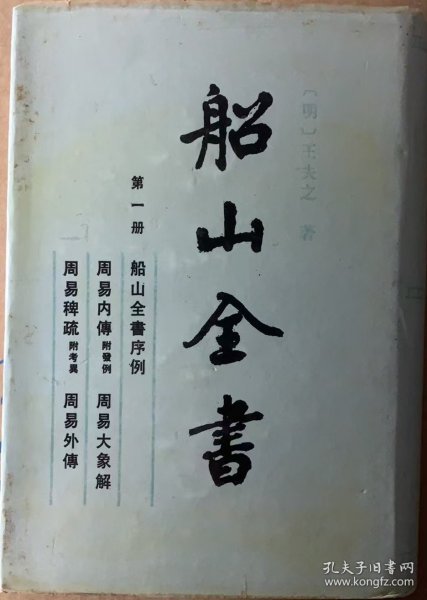 〔明〕王夫之 著
船山全書
第一册 船山全書序例
周易内傳 附發例 周易大象解
周易稗疏 附考異 周易外傳
孔夫子旧书网
book.kongfz.com